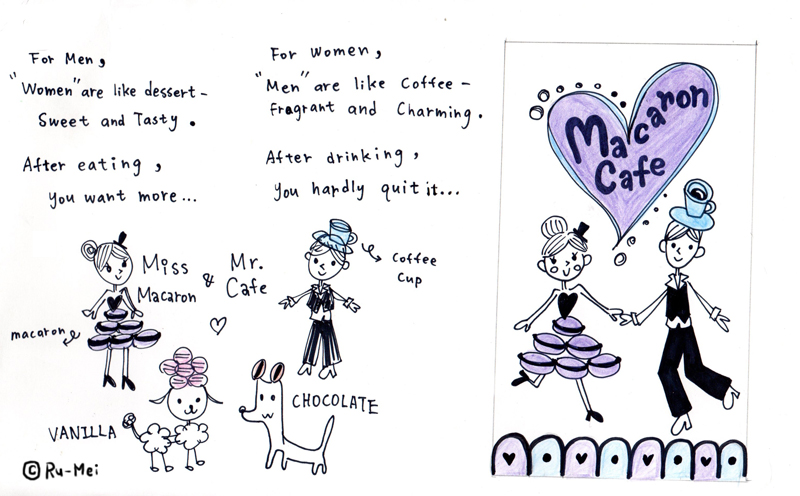 For Men,
"Women" are like dessert-
Sweet and Tasty.
After eating,
you want more...
For Women,
"Men" are like Coffee-
Fragrant and Charming.
After drinking,
you hardly quit it...
Miss
Macaron
&
Mr.
Cafe
Coffee
Cup
macaron
VANILLA
CHOCOLATE
© Ru-Mei
Macaron
Cafe